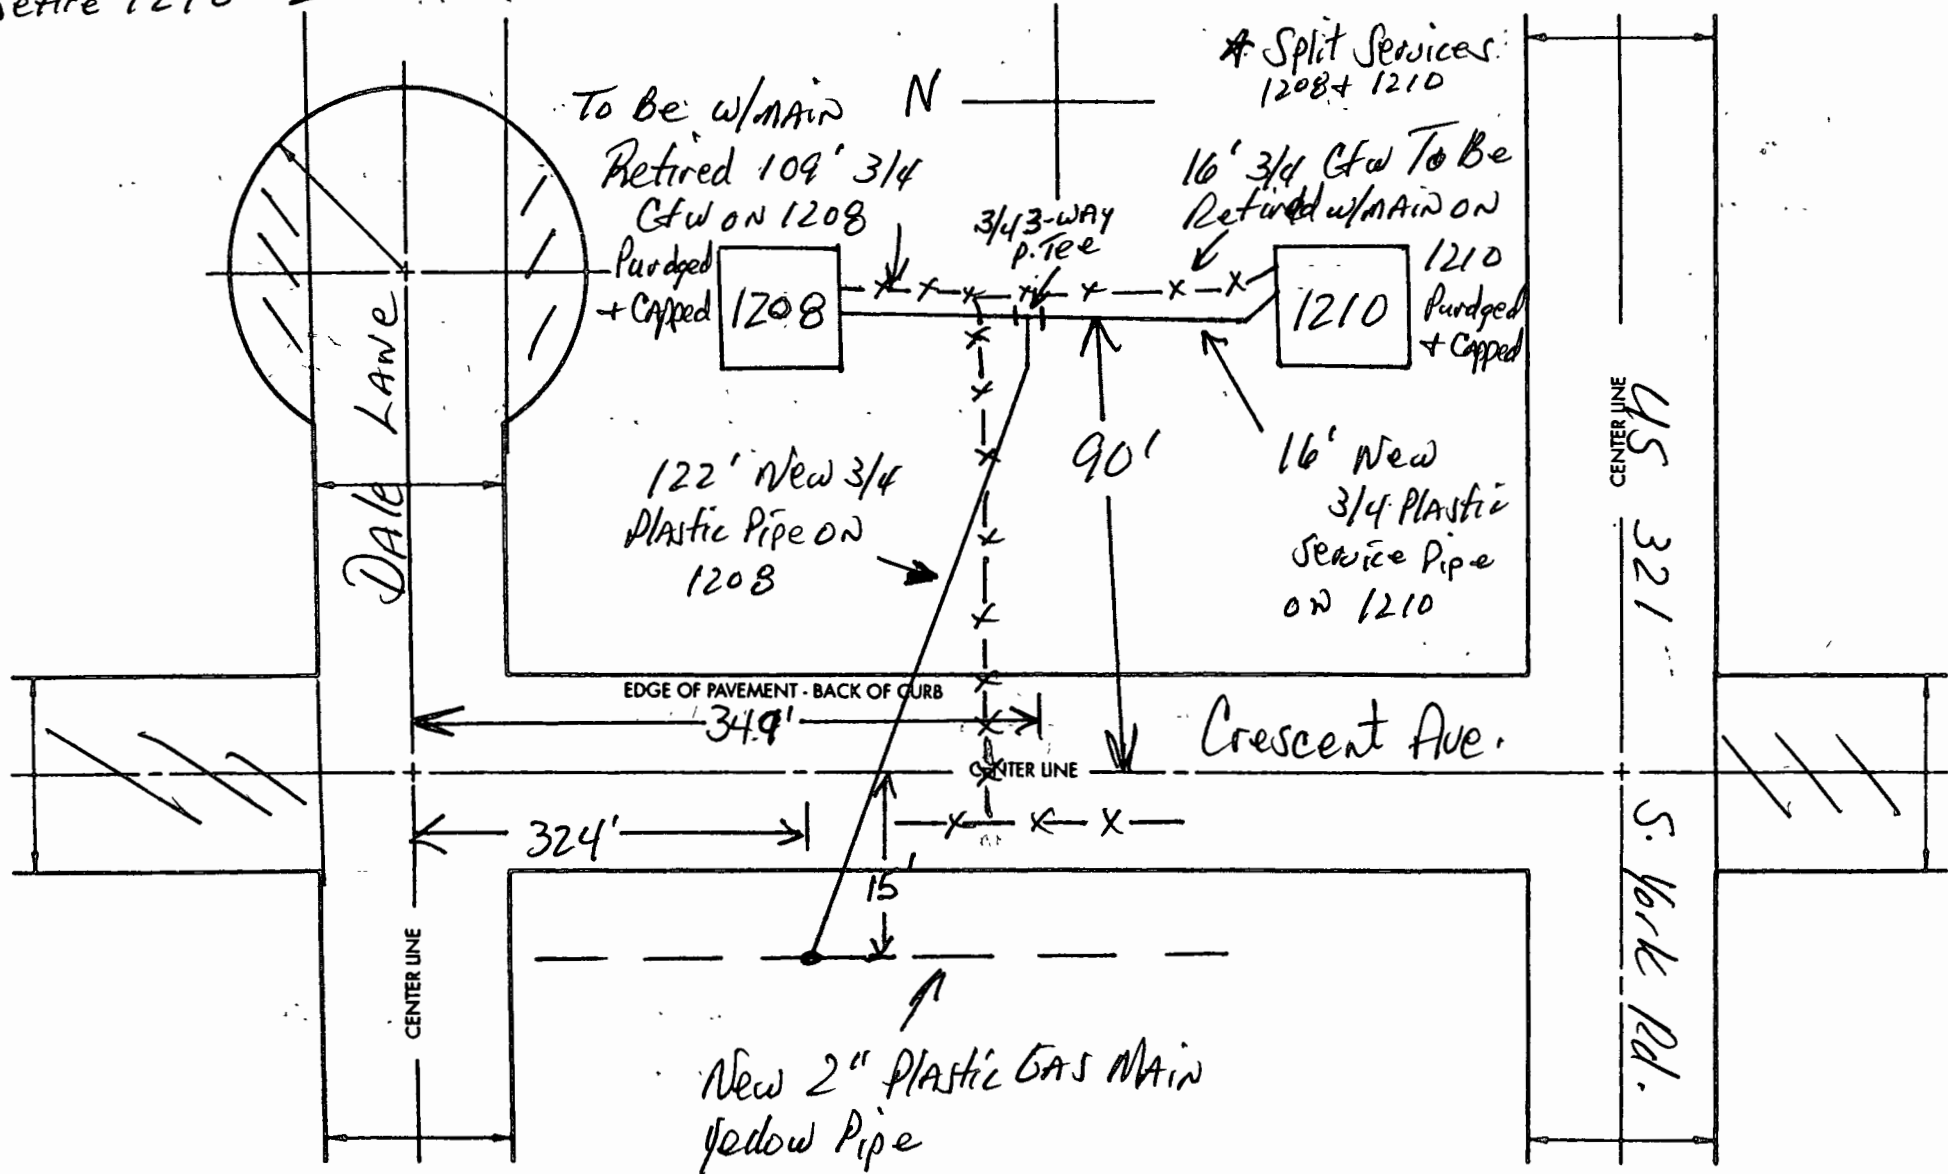 Retire 1210
* Split Services:
1208 + 1210
To Be w/MAIN
Retired 109' 3/4
Cfw ON 1208
Purdged
+ Capped
N
3/4 3-WAY
P. Tee
16' 3/4 Cfw To Be
Retired w/MAIN ON
1210
Purdged
+ Capped
1208
1210
Dale Lane
122' New 3/4
Plastic Pipe ON
1208
90'
16' New
3/4 Plastic
Service Pipe
ON 1210
CENTER LINE
US 321
S. York Rd.
EDGE OF PAVEMENT - BACK OF CURB
349'
Crescent Ave.
CENTER LINE
324'
15'
CENTER LINE
New 2" Plastic GAS MAIN
Yellow Pipe